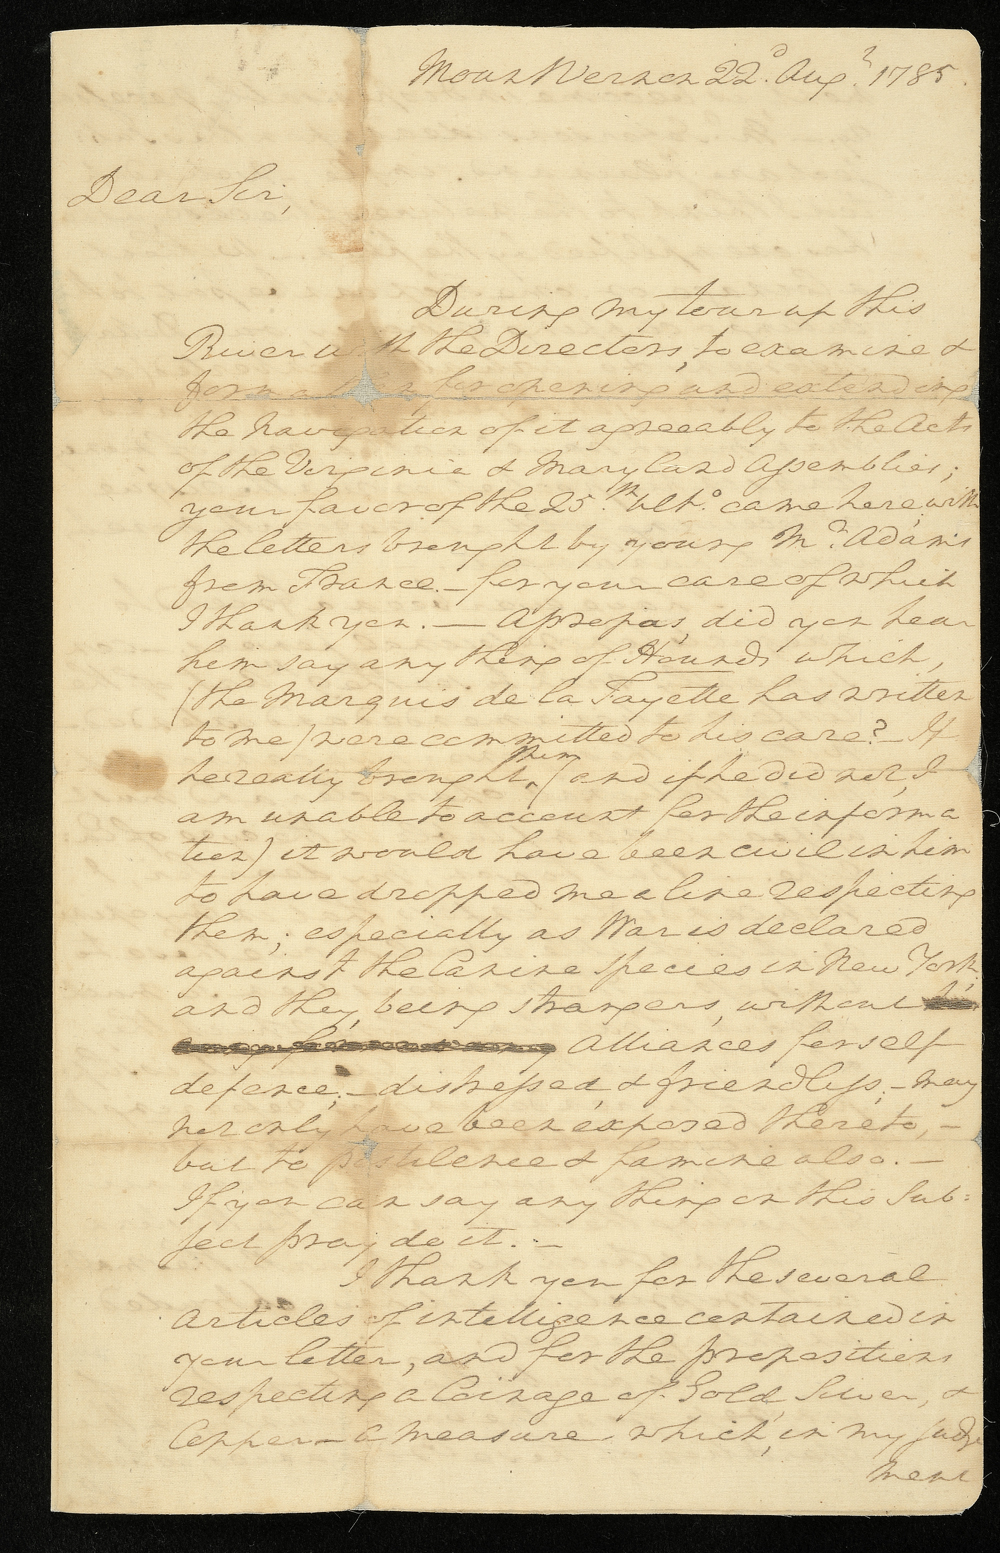 Mount Vernon 22d. Augt. 1785.
Dear Sir,
During my tour up this
River with the Directors, to examine &
form a plan for opening and extending
the Navigation of it agreeably to the Acts
of the Virginia & Maryland Assemblies;
your favor of the 25th. Ulto. came here, with
the letters brought by young Mr. Adams
from France. – for your care of which
I thank you. — Apropos, did you hear
him say any thing of Hounds which,
(the Marquis de la Fayette has written
to me) were committed to his care? If
he really brought them (and if he did not, I
am unable to account for the informa
tion) it would have been civil in him
to have dropped me a line respecting
them; especially as War is declared
against the Canine species in New York,
and they, being strangers, without
Alliances for self
defence; – distressed, & friendless; – may
not only have been exposed thereto, –
but to pestilence & famine also. —
If you can say any thing on this Sub=
ject pray do it. —
I thank you for the several
articles of intelligence contained in
your letter, and for the propositions
respecting a Coinage of Gold, Silver, &
Copper – a measure which, in my judg
ment